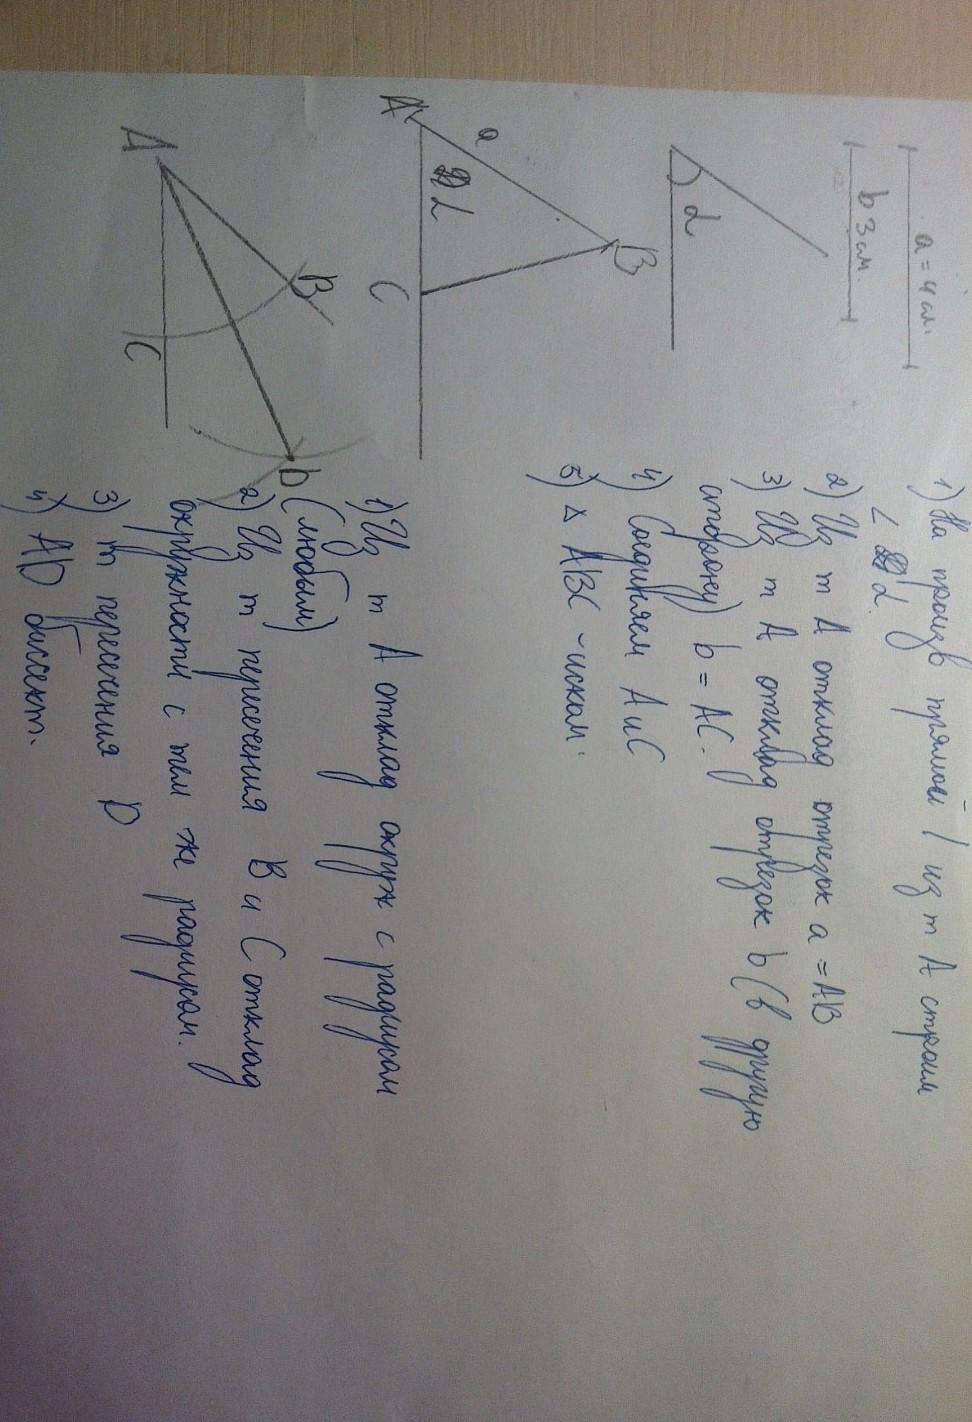 a = 4 см.
b 3 см.
α
A
a
B
α
C
1) На произв прямой l из т A строим
∠ α
2) Из т A отклад отрезок a = AB
3) Из т A отклад отрезок b (в другую
сторону) b = AC.
4) Соединяем A и C
5) △ ABC - иском.
A
B
C
D
1) Из т A отклад окруж с радиусом
(любым)
2) Из т пересечения B и C отклад
окружности с тем же радиусом.
3) т пересечения D
4) AD биссект.